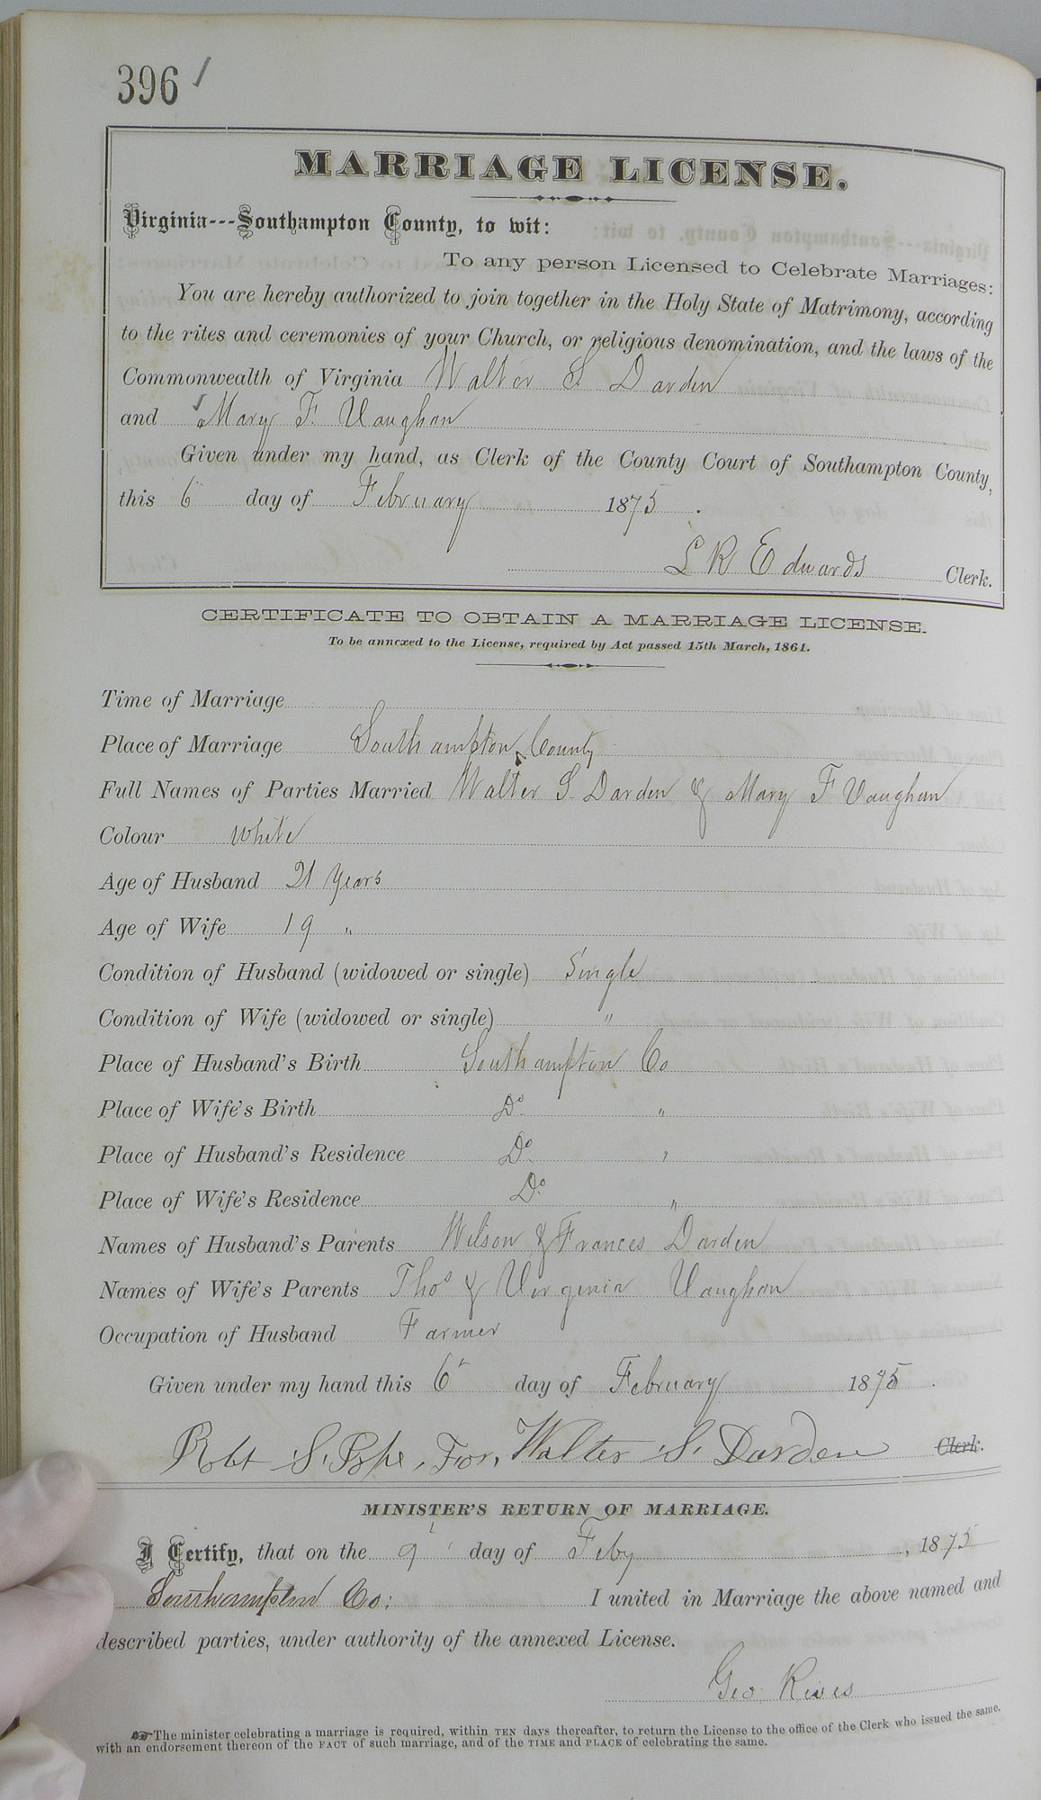 396 /
MARRIAGE LICENSE.
Virginia---Southampton County, to wit:
To any person Licensed to Celebrate Marriages:
You are hereby authorized to join together in the Holy State of Matrimony, according
to the rites and ceremonies of your Church, or religious denomination, and the laws of the
Commonwealth of Virginia Walter S. Darden
and Mary F. Vaughan
Given under my hand, as Clerk of the County Court of Southampton County,
this 6 day of February 1875.
L R Edwards Clerk.
CERTIFICATE TO OBTAIN A MARRIAGE LICENSE.
To be annexed to the License, required by Act passed 15th March, 1861.
Time of Marriage
Place of Marriage Southampton County
Full Names of Parties Married Walter S. Darden & Mary F Vaughan
Colour White
Age of Husband 21 Years
Age of Wife 19 "
Condition of Husband (widowed or single) Single
Condition of Wife (widowed or single) "
Place of Husband's Birth Southampton Co
Place of Wife's Birth Do "
Place of Husband's Residence Do "
Place of Wife's Residence Do "
Names of Husband's Parents Wilson & Frances Darden
Names of Wife's Parents Thos & Virginia Vaughan
Occupation of Husband Farmer
Given under my hand this 6 day of February 1875.
Robt S. Pope, For, Walter S. Darden Clerk.
MINISTER'S RETURN OF MARRIAGE.
I Certify, that on the 9 day of Feby, 1875
Southampton Co: I united in Marriage the above named and
described parties, under authority of the annexed License.
Geo Rives
☞ The minister celebrating a marriage is required, within TEN days thereafter, to return the License to the office of the Clerk who issued the same,
with an endorsement thereon of the FACT of such marriage, and of the TIME and PLACE of celebrating the same.